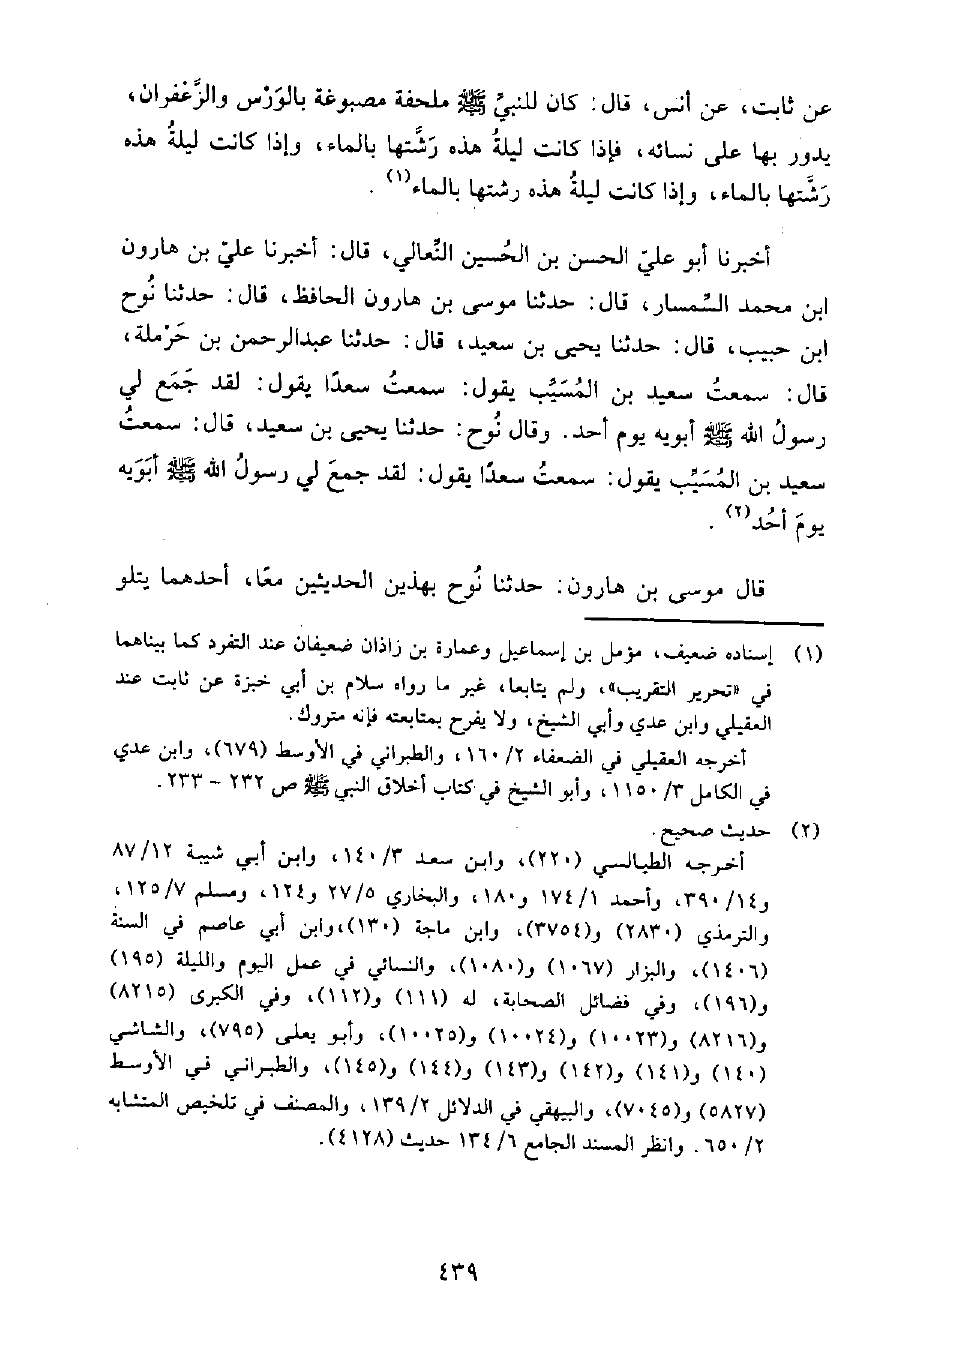 عن ثابت، عن أنس، قال: كان للنبيِّ ﷺ ملحفة مصبوغة بالوَرْس والزَّعْفران،
يدور بها على نسائه، فإذا كانت ليلةُ هذه رَشَّتها بالماء، وإذا كانت ليلةُ هذه
رَشَّتها بالماء، وإذا كانت ليلةُ هذه رشتها بالماء(١) .
أخبرنا أبو عليّ الحسن بن الحُسين النِّعالي، قال: أخبرنا عليّ بن هارون
ابن محمد السِّمسار، قال: حدثنا موسى بن هارون الحافظ، قال: حدثنا نُوح
ابن حبيب، قال: حدثنا يحيى بن سعيد، قال: حدثنا عبدالرحمن بن حَرْملة،
قال: سمعتُ سعيد بن المُسَيِّب يقول: سمعتُ سعدًا يقول: لقد جَمَع لي
رسولُ الله ﷺ أبويه يوم أحد. وقال نُوح: حدثنا يحيى بن سعيد، قال: سمعتُ
سعيد بن المُسَيِّب يقول: سمعتُ سعدًا يقول: لقد جمعَ لي رسولُ الله ﷺ أبَوَيه
يومَ أحُد(٢) .
قال موسى بن هارون: حدثنا نُوح بهذين الحديثين معًا، أحدهما يتلو
(١) إسناده ضعيف، مؤمل بن إسماعيل وعمارة بن زاذان ضعيفان عند التفرد كما بيناهما
في «تحرير التقريب»، ولم يتابعا، غير ما رواه سلام بن أبي خبزة عن ثابت عند
العقيلي وابن عدي وأبي الشيخ، ولا يفرح بمتابعته فإنه متروك.
أخرجه العقيلي في الضعفاء ٢/ ١٦٠، والطبراني في الأوسط (٦٧٩)، وابن عدي
في الكامل ٣/ ١١٥٠، وأبو الشيخ في كتاب أخلاق النبي ﷺ ص ٢٣٢ - ٢٣٣.
(٢) حديث صحيح.
أخرجه الطيالسي (٢٢٠)، وابن سعد ٣/ ١٤٠، وابن أبي شيبة ١٢/ ٨٧
و١٤/ ٣٩٠، وأحمد ١/ ١٧٤ و١٨٠، والبخاري ٥/ ٢٧ و١٢٤، ومسلم ٧/ ١٢٥،
والترمذي (٢٨٣٠) و(٣٧٥٤)، وابن ماجة (١٣٠)،وابن أبي عاصم في السنة
(١٤٠٦)، والبزار (١٠٦٧) و(١٠٨٠)، والنسائي في عمل اليوم والليلة (١٩٥)
و(١٩٦)، وفي فضائل الصحابة، له (١١١) و(١١٢)، وفي الكبرى (٨٢١٥)
و(٨٢١٦) و(١٠٠٢٣) و(١٠٠٢٤) و(١٠٠٢٥)، وأبو يعلى (٧٩٥)، والشاشي
(١٤٠) و(١٤١) و(١٤٢) و(١٤٣) و(١٤٤) و(١٤٥)، والطبراني في الأوسط
(٥٨٢٧) و(٧٠٤٥)، والبيهقي في الدلائل ٢/ ١٣٩، والمصنف في تلخيص المتشابه
٢/ ٦٥٠. وانظر المسند الجامع ٦/ ١٣٤ حديث (٤١٢٨).
٤٣٩